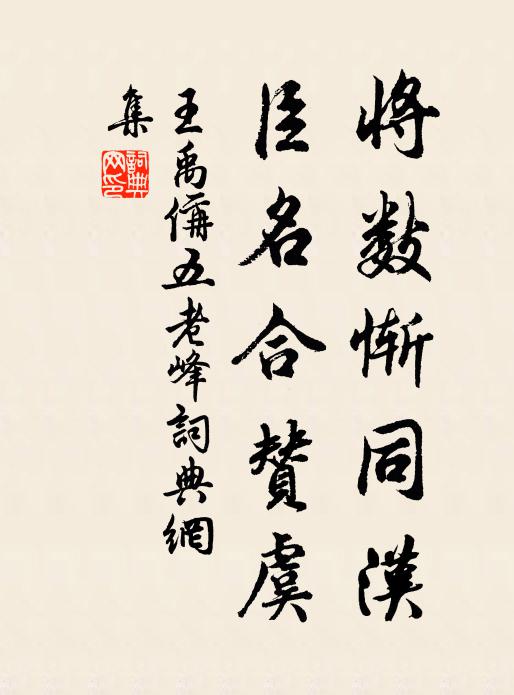 將數慚同漢
臣名合贊虞
王禹偁五老峰詞典網
集
詞典
网印